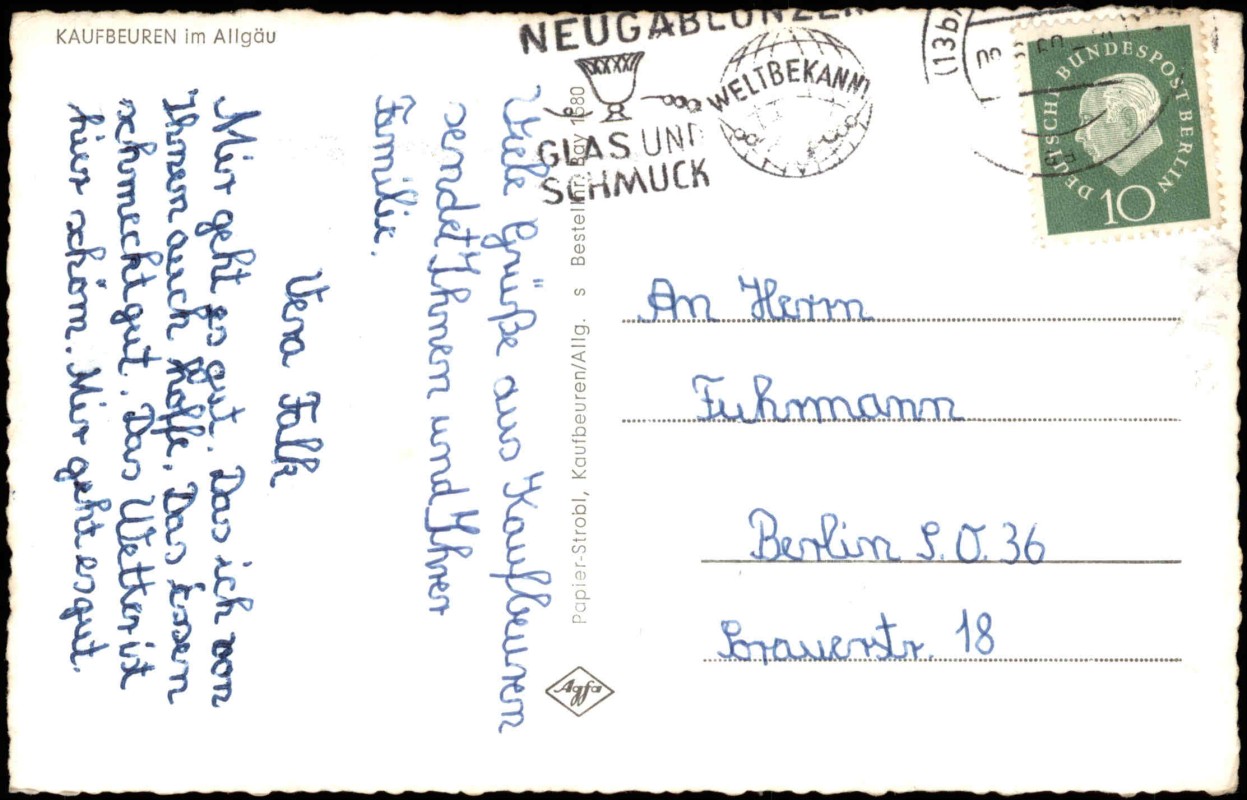 KAUFBEUREN im Allgäu
NEUGABLONZER
WELTBEKANNT
GLAS UND
SCHMUCK
(13b)
DEUTSCHE BUNDESPOST BERLIN
10
Viele Grüße aus Kaufbeuren
sendet Ihnen und Ihrer
Familie.
Vera Falk
Mir geht es gut. Das ich von
Ihnen auch hoffe. Das Essen
schmeckt gut. Das Wetter ist
hier schön. Mir geht es gut.
Papier-Strobl, Kaufbeuren/Allg. s Bestellnr. Bay 1680
Agfa
An Herrn
Fuhrmann
Berlin S.O. 36
Sorauerstr. 18